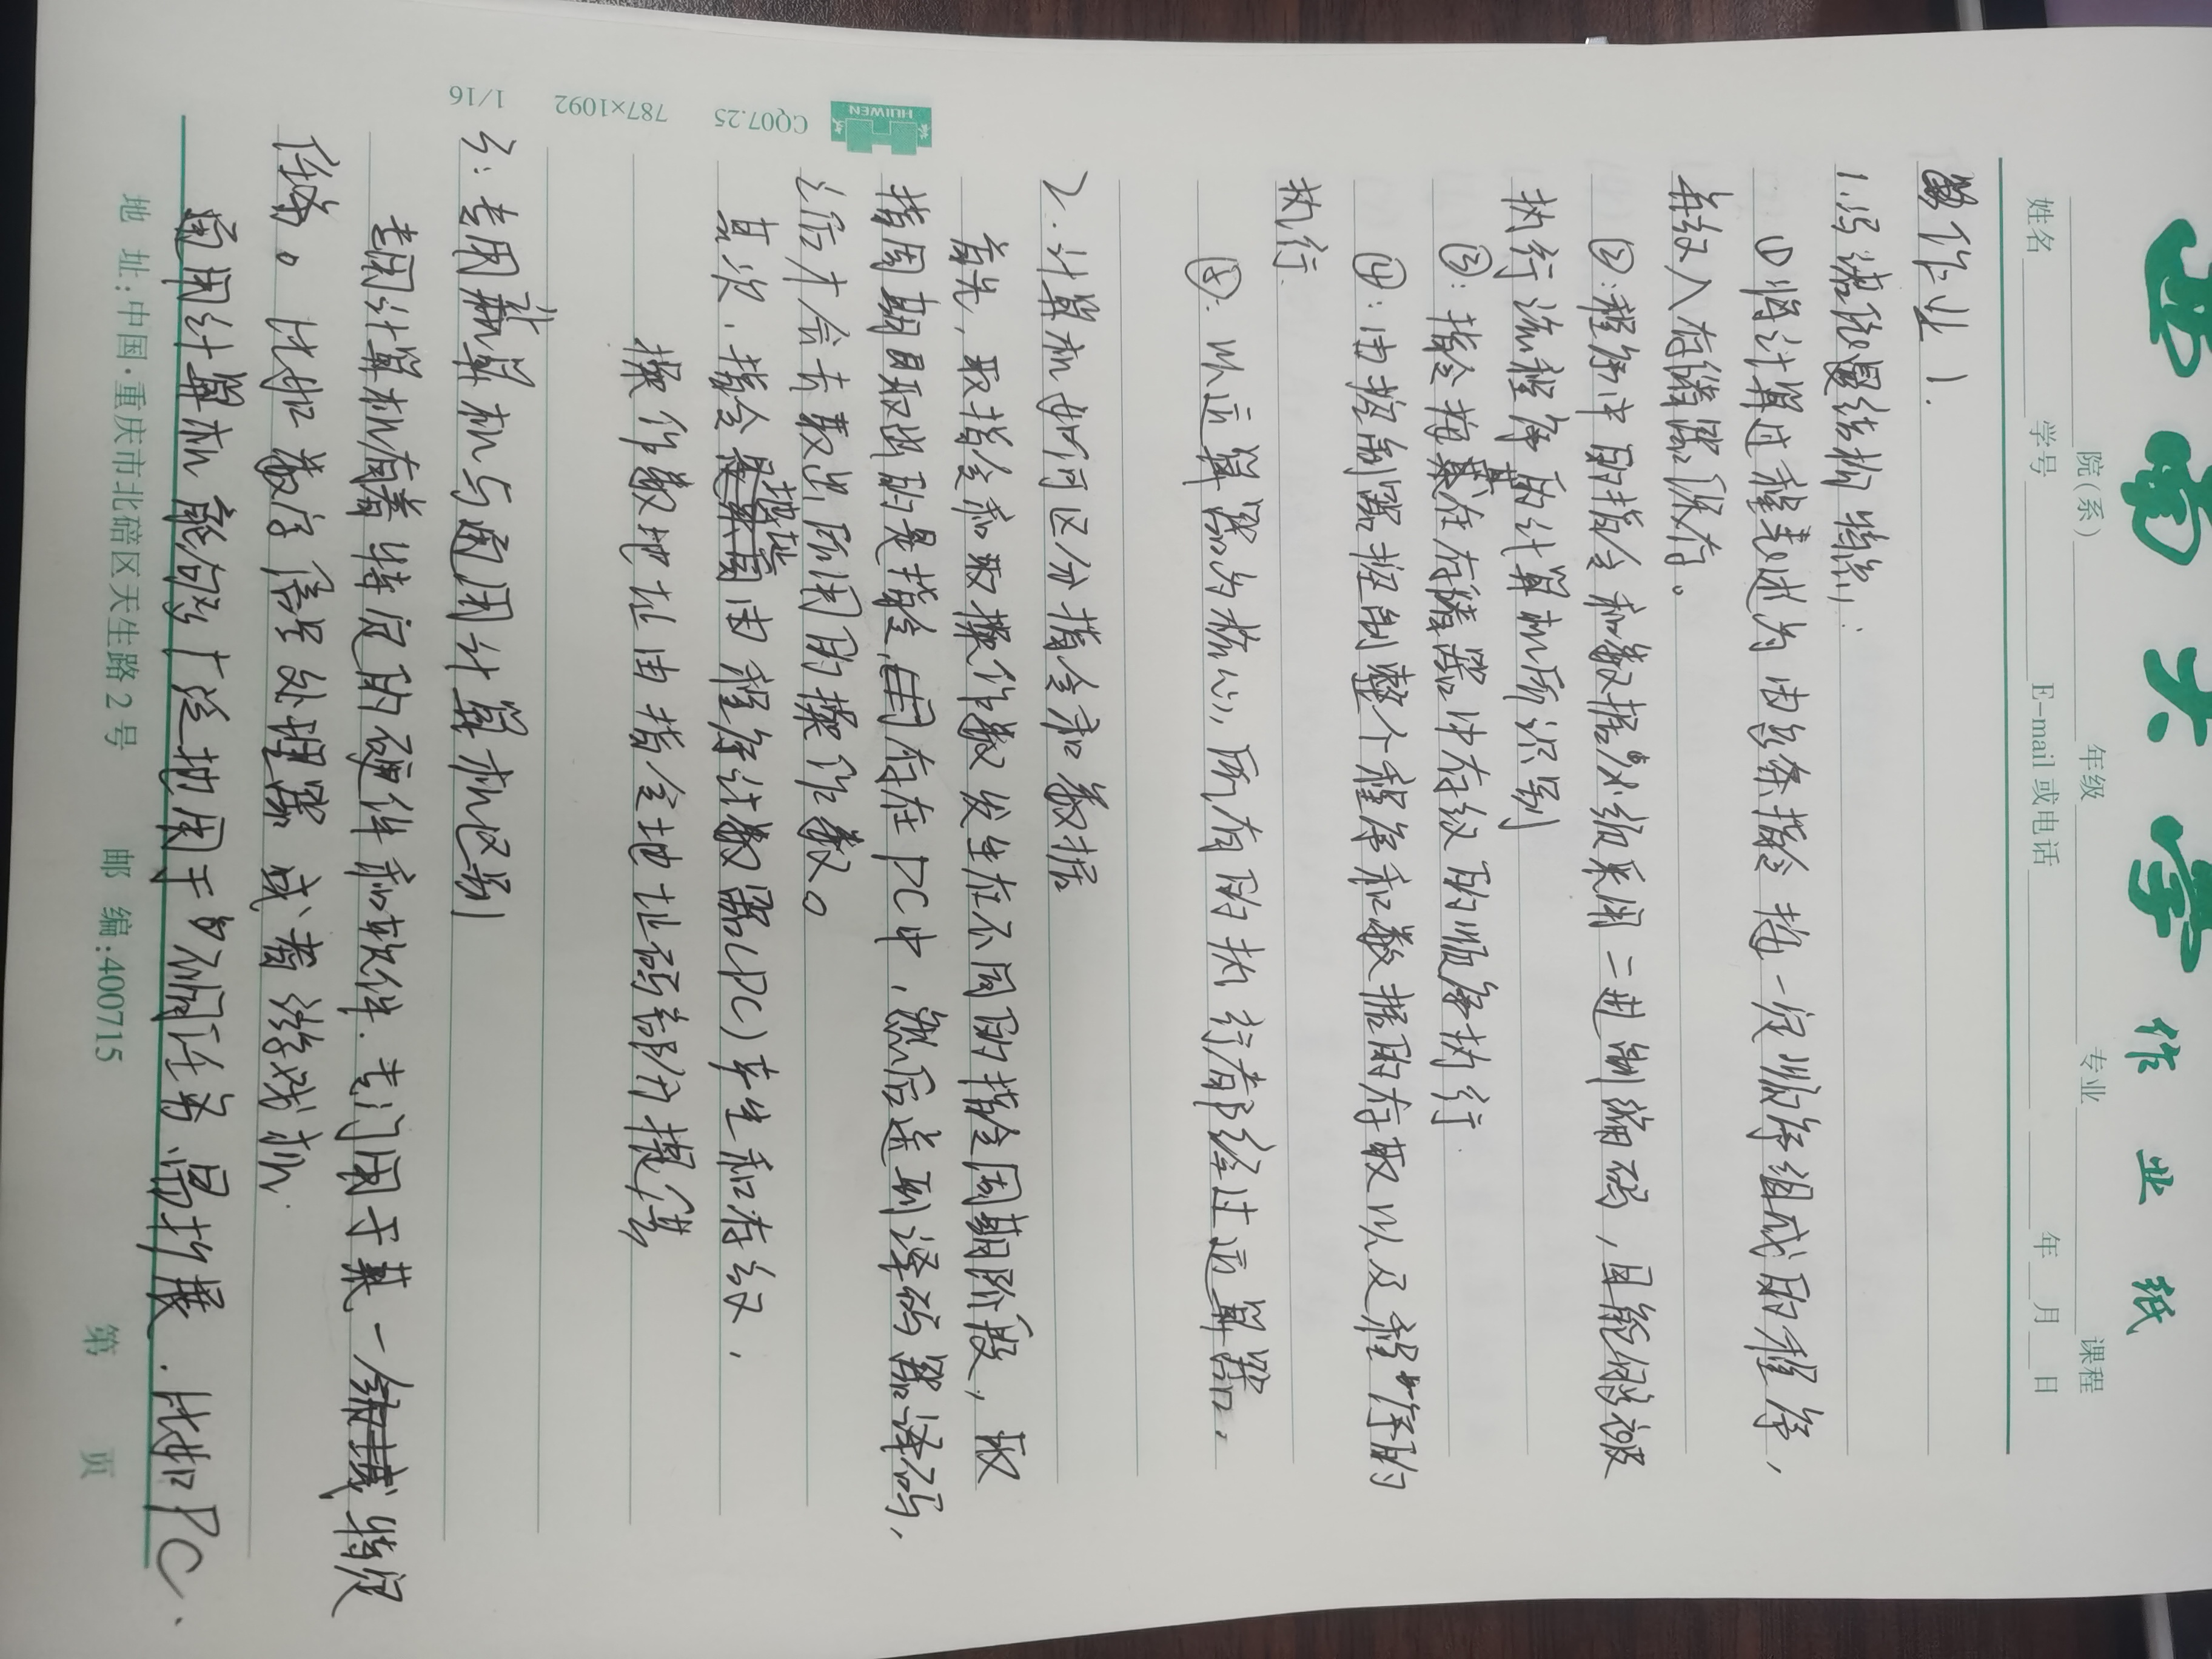 西南大学 作业纸
院(系) 年级 专业 课程
姓名 学号 E-mail 或电话 年 月 日
作业1.
1.冯诺依曼结构特点:
①将计算过程表述为由多条指令按一定顺序组成的程序,
并纹入存储器保存。
②:程序中的指令和数据必须采用二进制编码,且能够被
执行该程序的计算机所识别
③:指令按其在存储器中存纹的顺序执行.
④:由控制器控制整个程序和数据的存取以及程序的
执行.
⑤:以运算器为核心,所有的执行都经过运算器.
2.计算机如何区分指令和数据
首先,取指令和取操作数发生在不同的指令周期阶段,取
指周期取出的是指令,存在PC中,然后送到译码器译码,
之后才会去取出所用的操作数。
其次,指令地址由程序计数器(PC)产生和存纹,
操作数地址由指令地址码部分提供
3:专用计算机与通用计算机区别
专用计算机有着特定的硬件和软件.专门用于某一特定
任务。比如数字信号处理器或者游戏机.
通用计算机能够广泛地用于不同任务.易扩展.比如PC.
地 址:中国·重庆市北碚区天生路2号 邮 编:400715 第 页
HUIWEN CQ07.25 787×1092 1/16